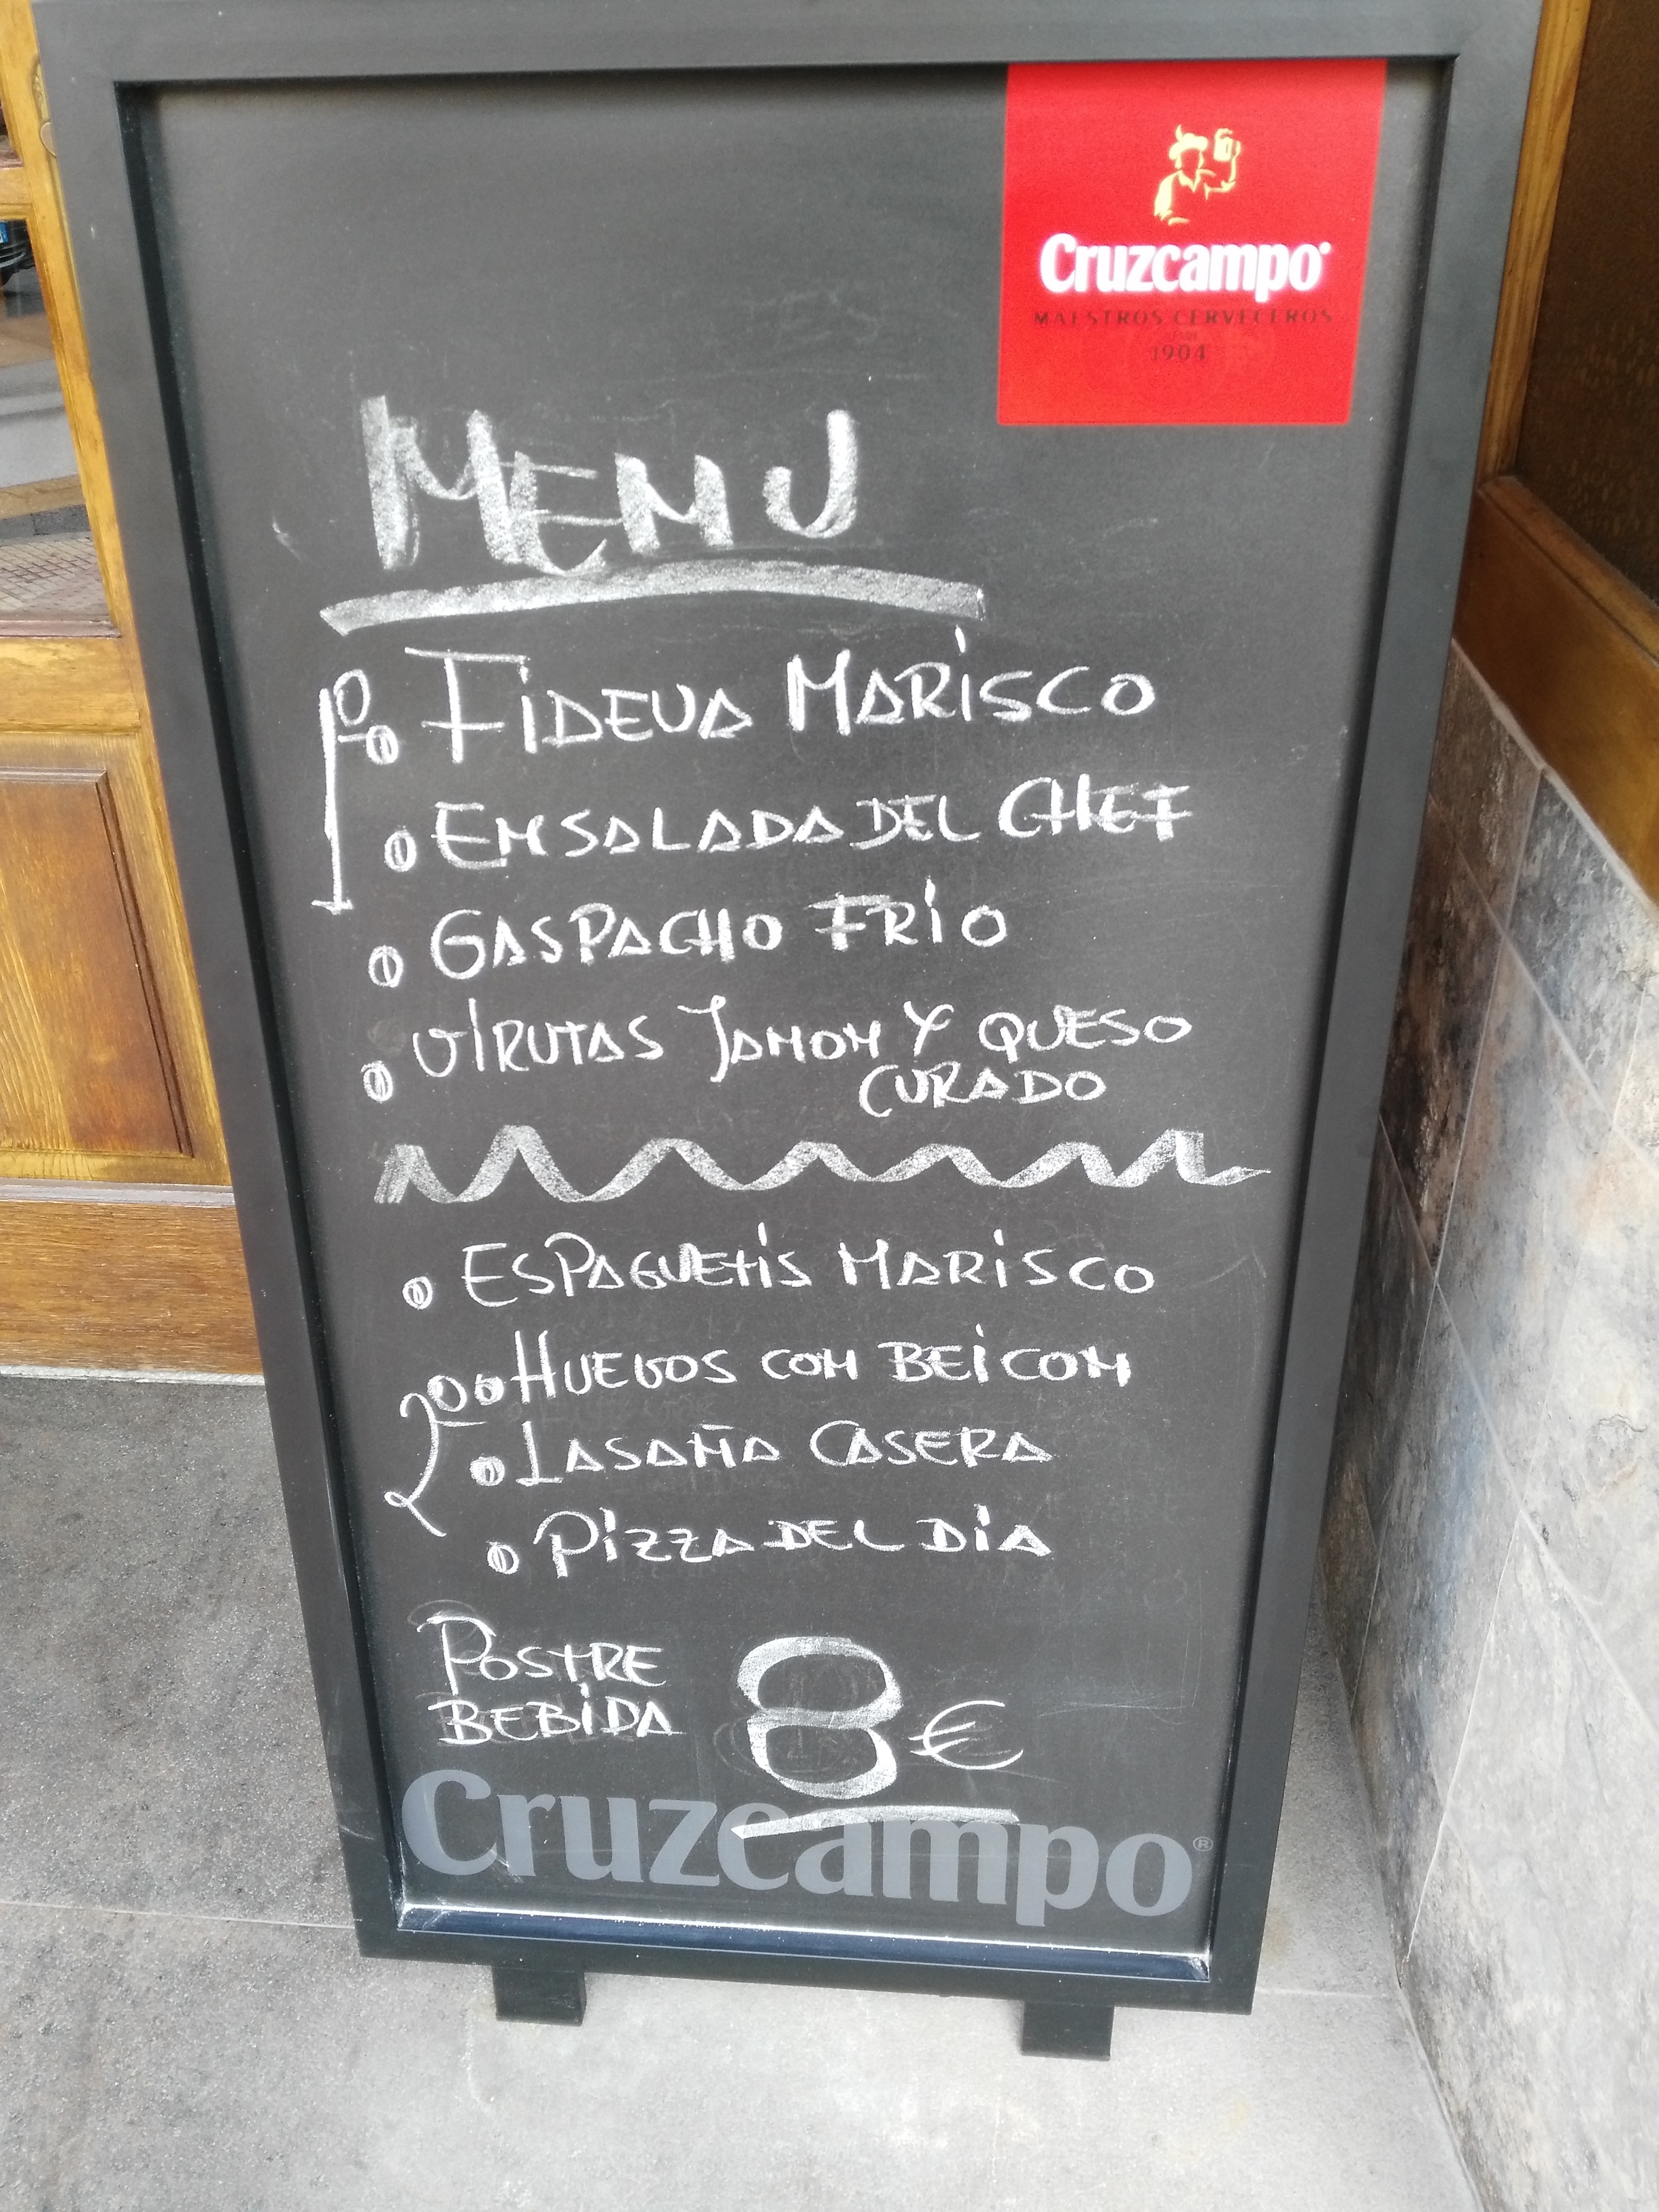 Cruzcampo
MAESTROS CERVECEROS
1904
MENU
1º FIDEUA MARISCO
ENSALADA DEL CHEF
GASPACHO FRIO
VIRUTAS JAMON Y QUESO
CURADO
ESPAGUETIS MARISCO
2º HUEVOS CON BEICON
LASAÑA CASERA
PIZZA DEL DIA
POSTRE
BEBIDA
8€
Cruzcampo®